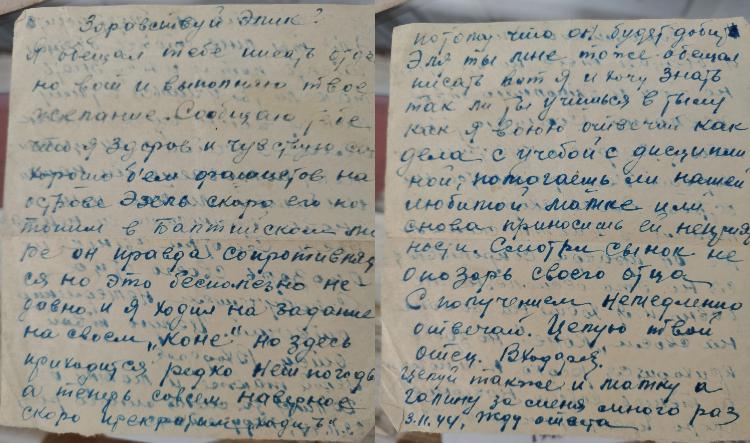 Здоровствуй Элик!
Я обещал тебе писать
но вот и выполняю твое
желание. Сообщаю
что я здоров и чувствую
хорошо бьем фашистов на
острове Эзель скоро его по
топим в Балтийском
ре он правда сопротивляет
ся но это бесполезно не
давно и я ходил на задание
на своем „коне" но здесь
приходится редко нет погоды
а теперь совсем наверное
скоро
потому что он будет добит
Эля ты мне тоже обещал
писать вот я и хочу знать
так ли ты учишься в тылу
как я воюю отвечай как
дела с учебой с дисципли
ной, помогаешь ли нашей
любимой матке или
снова приносишь ей неприят
ности. Смотри сынок не
опозорь своего отца
С получением немедленно
отвечай. Целую твой
отец.
Целуй также и матку и
галину за меня много раз
3.11.44, жду ответа